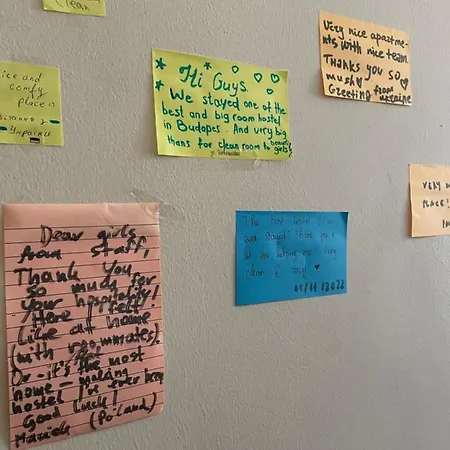 clean
nice and
comfy
place
України
Hi Guys.
We stayed one of the
best and big room hostel
in Budapes. And very big
thans for clean room to beauty
girls
Very nice apartme-
nts with nice team.
Thanks you so
mush
Greeting from ukraine
VERY
PLACE!
Dear girls
from staff,
Thank you,
so much for
your hospitality!
Here felt
like at home
(with roommates).
Or - it's the most
home - making
hostel I've ever been
Good luck!
Maciek (Poland)
The best hostel I
ever stayed! Thank you a
lot for helping me! Very
clean & cosy! ♥
01/11/2022